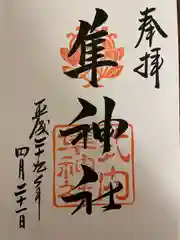 奉拝
隼神社
平成二十九年
四月二十一日
式内
隼神社